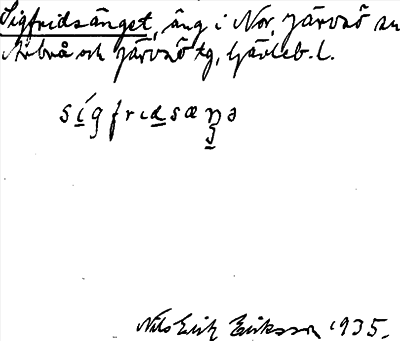 Sigfridsänget, äng i Nor, Järvsö sn
Arbrå och Järvsö tg, Gävleb. l.
sígfrıdsæŋə
Nils Erik Eriksson 1935.